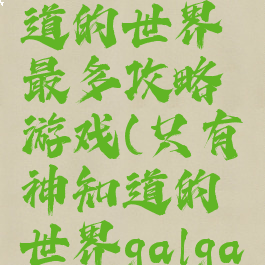 道的世界
最多攻略
游戏(只有
神知道的
世界galga